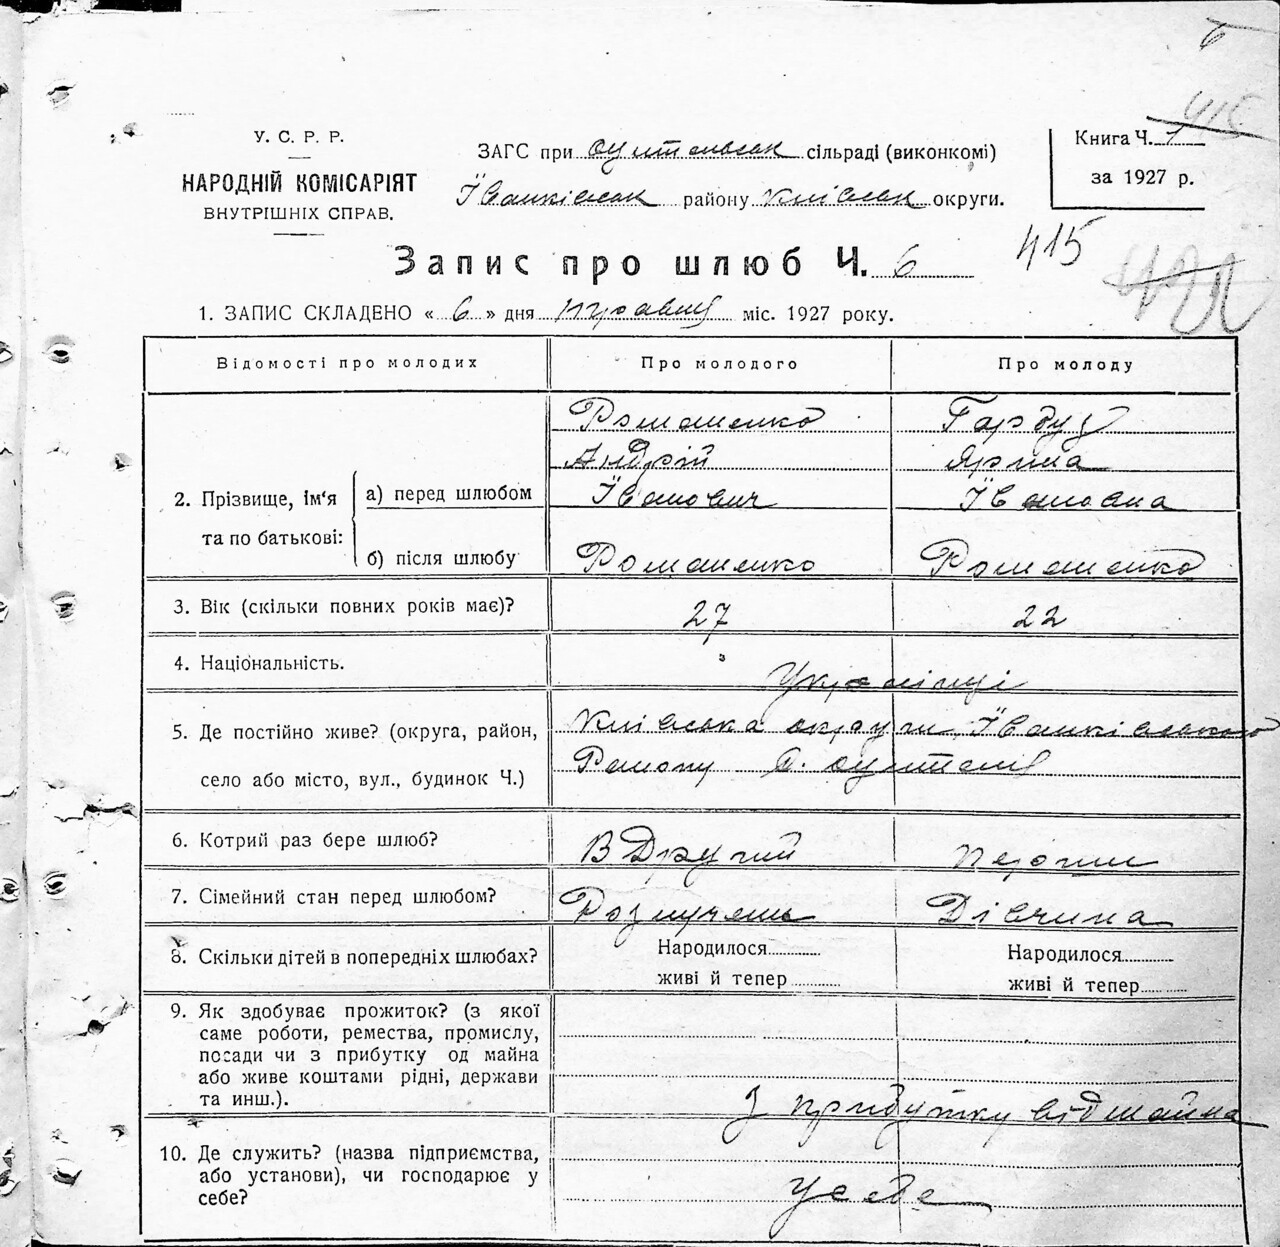 6
У. С. Р. Р.
НАРОДНІЙ КОМІСАРІЯТ
ВНУТРІШНІХ СПРАВ.
ЗАГС при сільраді (виконкомі)
Іванківськ району Київськ округи.
415
Книга Ч. 1
за 1927 р.
Запис про шлюб Ч. 6
415
1. ЗАПИС СКЛАДЕНО « 6 » дня травня міс. 1927 року.
Відомості про молодих Про молодого Про молоду
Романенко Гарбуз
Андрій Ярина
2. Прізвище, ім'я та по батькові: а) перед шлюбом Іванович Івановна
б) після шлюбу Романенко Романенко
3. Вік (скільки повних років має)? 27 22
4. Національність. Українці
5. Де постійно живе? (округа, район, Київська округи Іванківського
село або місто, вул., будинок Ч.) Району с.
6. Котрий раз бере шлюб? В Другий первий
7. Сімейний стан перед шлюбом? Розлучень Дівчина
8. Скільки дітей в попередніх шлюбах? Народилося Народилося
живі й тепер живі й тепер
9. Як здобуває прожиток? (з якої
саме роботи, ремества, промислу,
посади чи з прибутку од майна
або живе коштами рідні, держави
та инш.). З прибутку від майна
10. Де служить? (назва підприємства,
або установи), чи господарює у
себе? У себе